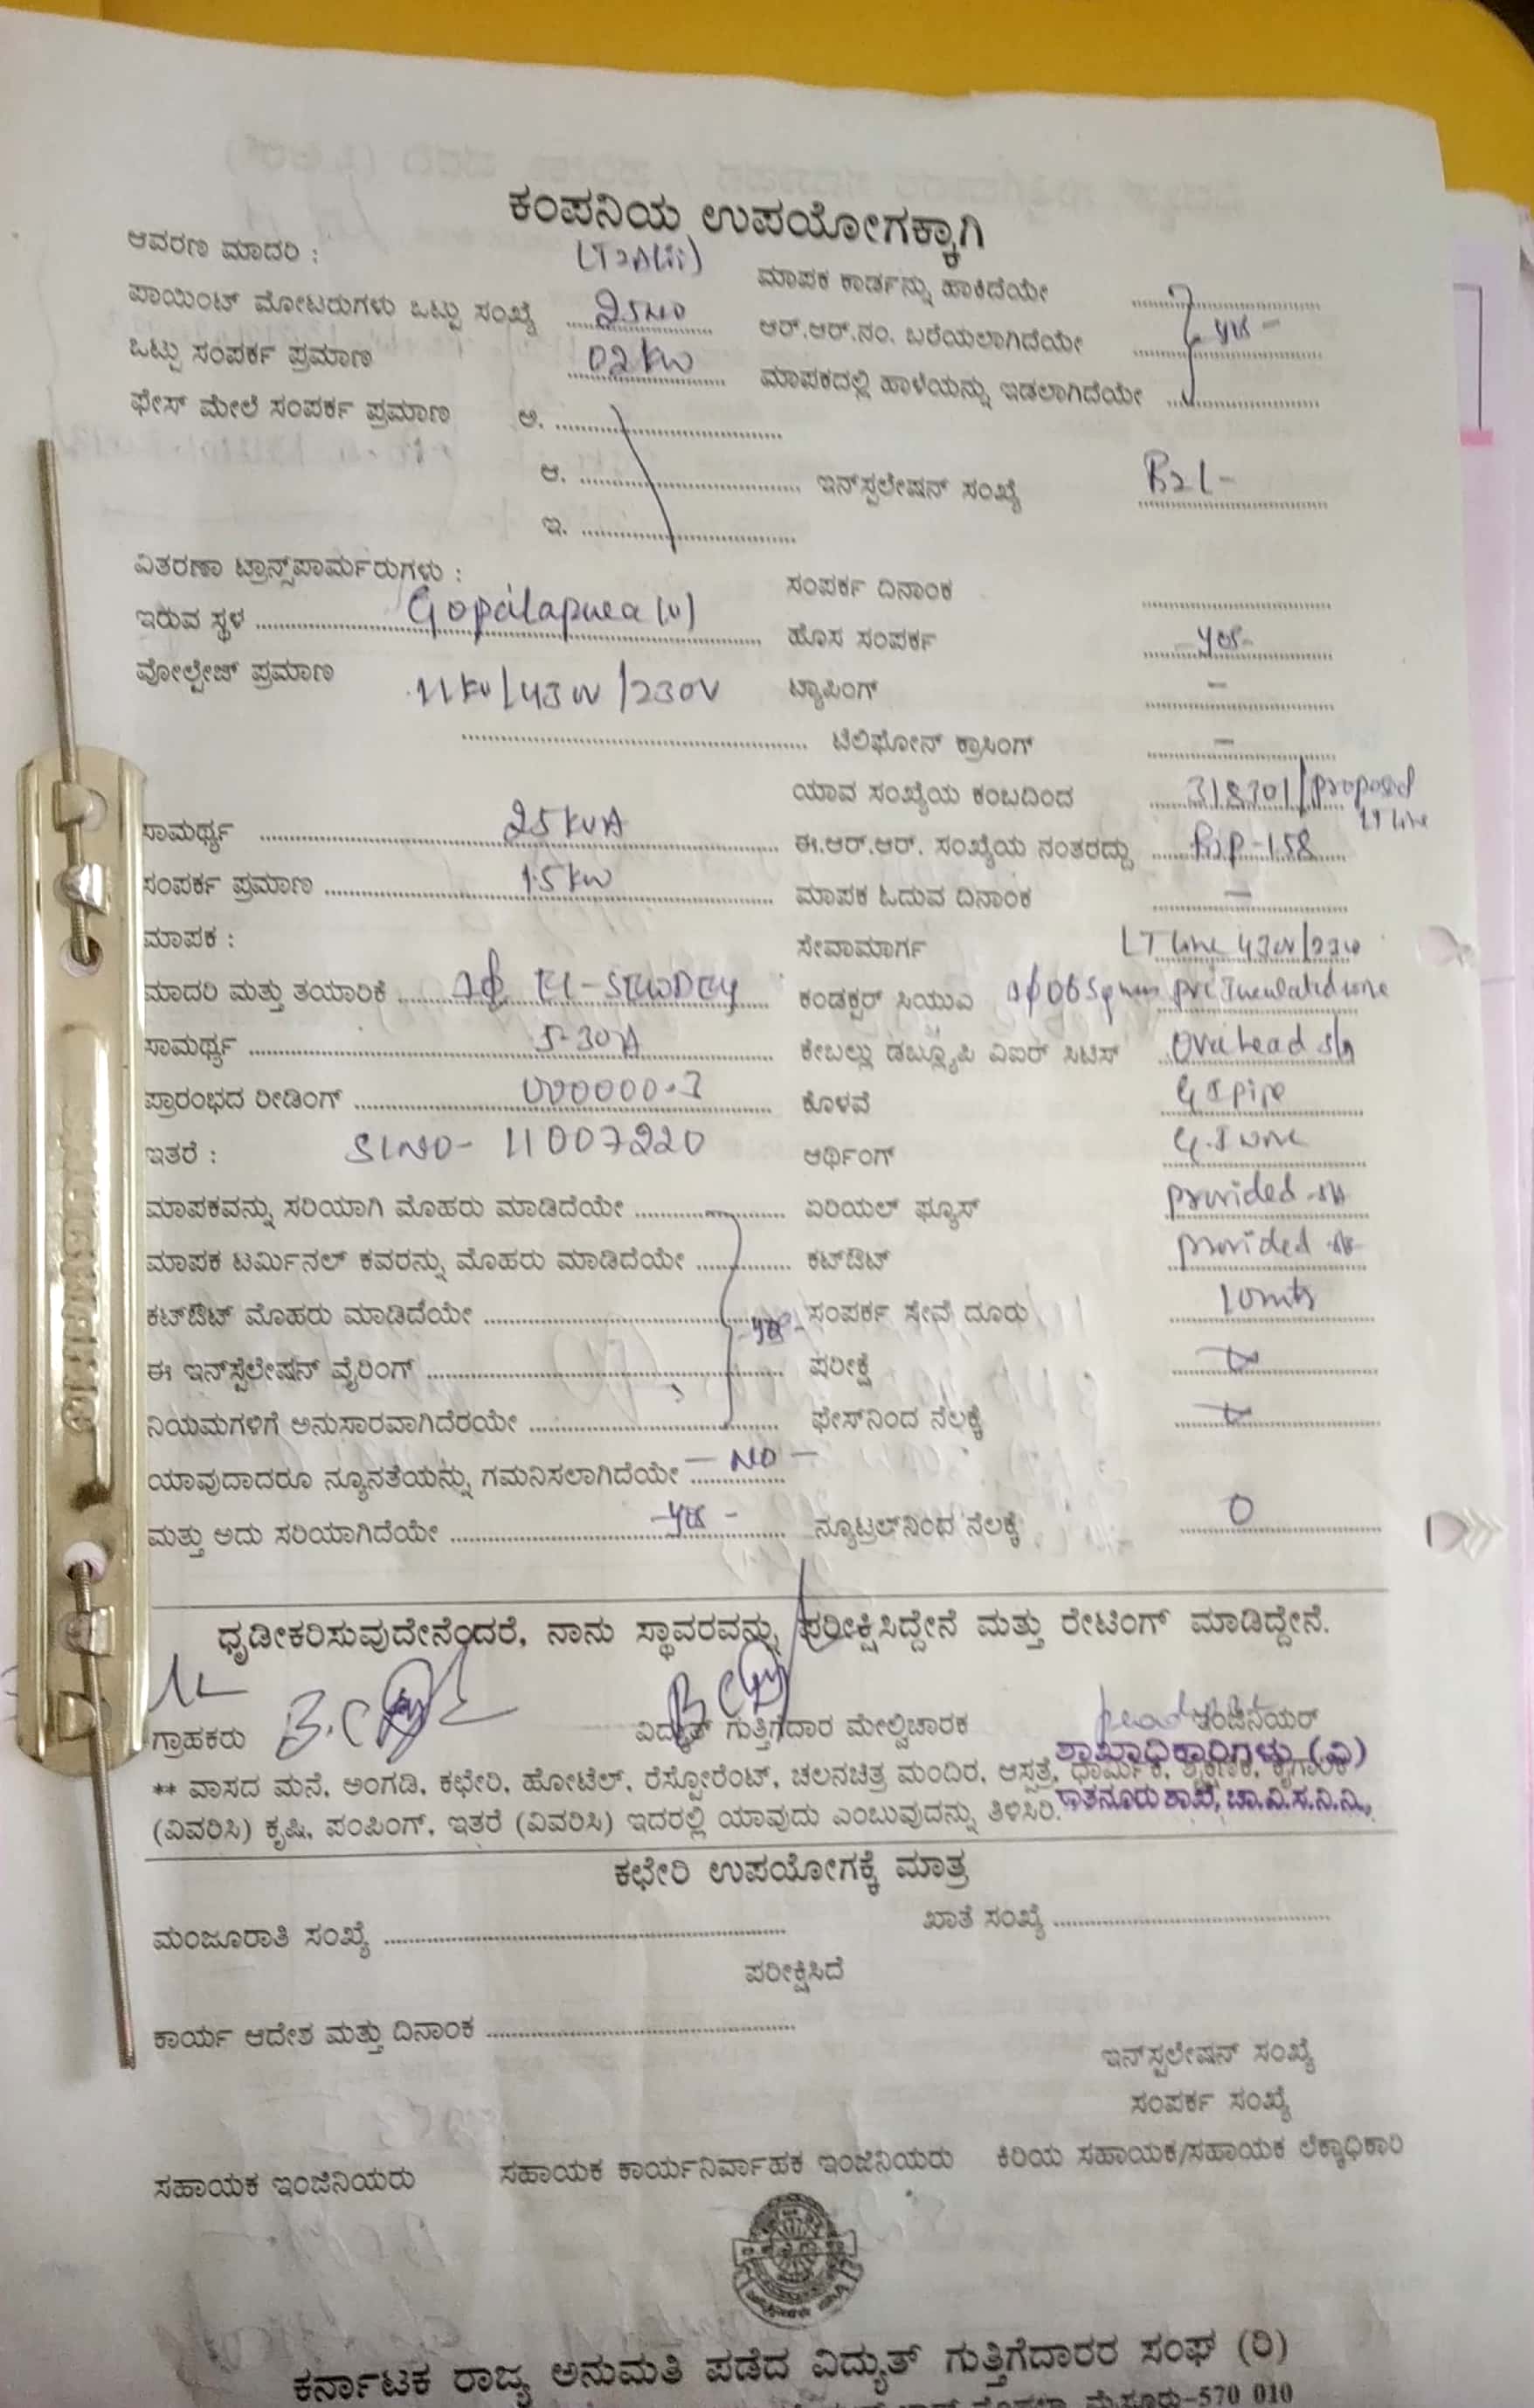 ಕಂಪನಿಯ ಉಪಯೋಗಕ್ಕಾಗಿ
ಆವರಣ ಮಾದರಿ :
ಮಾಪಕ ಕಾರ್ಡನ್ನು ಹಾಕಿದೆಯೇ
ಪಾಯಿಂಟ್ ಮೋಟರುಗಳು ಒಟ್ಟು ಸಂಖ್ಯೆ
ಆರ್.ಆರ್.ನಂ. ಬರೆಯಲಾಗಿದೆಯೇ yes -
ಒಟ್ಟು ಸಂಪರ್ಕ ಪ್ರಮಾಣ 02 kw ಮಾಪಕದಲ್ಲಿ ಹಾಳೆಯನ್ನು ಇಡಲಾಗಿದೆಯೇ
ಫೇಸ್ ಮೇಲೆ ಸಂಪರ್ಕ ಪ್ರಮಾಣ ಅ.
ಆ. ಇನ್‌ಸ್ಟಲೇಷನ್ ಸಂಖ್ಯೆ
ಇ.
ವಿತರಣಾ ಟ್ರಾನ್ಸ್‌ಪಾರ್ಮರುಗಳು : ಸಂಪರ್ಕ ದಿನಾಂಕ
ಇರುವ ಸ್ಥಳ Gopalapura (v) ಹೊಸ ಸಂಪರ್ಕ -yes-
ವೋಲ್ಟೇಜ್ ಪ್ರಮಾಣ 11 kv / 430v / 230V ಟ್ಯಾಪಿಂಗ್ -
ಟೆಲಿಫೋನ್ ಕ್ರಾಸಿಂಗ್ -
ಯಾವ ಸಂಖ್ಯೆಯ ಕಂಬದಿಂದ proposed LT line
ಸಾಮರ್ಥ್ಯ 25 KVA ಈ.ಆರ್.ಆರ್. ಸಂಖ್ಯೆಯ ನಂತರದ್ದು
ಸಂಪರ್ಕ ಪ್ರಮಾಣ 15 kw ಮಾಪಕ ಓದುವ ದಿನಾಂಕ -
ಮಾಪಕ : ಸೇವಾಮಾರ್ಗ LT line
ಮಾದರಿ ಮತ್ತು ತಯಾರಿಕೆ ಕಂಡಕ್ಟರ್ ಸಿಯುಎ
ಸಾಮರ್ಥ್ಯ 5-30A ಕೇಬಲ್ಲು ಡಬ್ಲ್ಯೂಪಿ ವಿಐರ್ ಸಿಟಿಸ್ Overhead
ಪ್ರಾರಂಭದ ರೀಡಿಂಗ್ ಕೊಳವೆ G I pipe
ಇತರೆ : Sl NO- 11007220 ಆರ್ಥಿಂಗ್ G.I wire
ಮಾಪಕವನ್ನು ಸರಿಯಾಗಿ ಮೊಹರು ಮಾಡಿದೆಯೇ ಏರಿಯಲ್ ಫ್ಯೂಸ್ provided
ಮಾಪಕ ಟರ್ಮಿನಲ್ ಕವರನ್ನು ಮೊಹರು ಮಾಡಿದೆಯೇ ಕಟ್‌ಔಟ್ provided
ಕಟ್‌ಔಟ್ ಮೊಹರು ಮಾಡಿದೆಯೇ -yes- ಸಂಪರ್ಕ ಸೇವೆ ದೂರು 10mts
ಈ ಇನ್‌ಸ್ಟಲೇಷನ್ ವೈರಿಂಗ್ ಪರೀಕ್ಷೆ
ನಿಯಮಗಳಿಗೆ ಅನುಸಾರವಾಗಿದೆರಯೇ ಫೇಸ್‌ನಿಂದ ನೆಲಕ್ಕೆ
ಯಾವುದಾದರೂ ನ್ಯೂನತೆಯನ್ನು ಗಮನಿಸಲಾಗಿದೆಯೇ - NO -
ಮತ್ತು ಅದು ಸರಿಯಾಗಿದೆಯೇ -yes - ನ್ಯೂಟ್ರಲ್‌ನಿಂಧ ನೆಲಕ್ಕೆ 0
ಧೃಡೀಕರಿಸುವುದೇನೆಂದರೆ, ನಾನು ಸ್ಥಾವರವನ್ನು ಪರೀಕ್ಷಿಸಿದ್ದೇನೆ ಮತ್ತು ರೇಟಿಂಗ್ ಮಾಡಿದ್ದೇನೆ.
ಗ್ರಾಹಕರು ವಿದ್ಯುತ್ ಗುತ್ತಿಗೆದಾರ ಮೇಲ್ವಿಚಾರಕ ಇಂಜಿನಿಯರ್
ಶಾಖಾಧಿಕಾರಿಗಳು (ವಿ)
** ವಾಸದ ಮನೆ, ಅಂಗಡಿ, ಕಛೇರಿ, ಹೋಟೆಲ್, ರೆಸ್ಟೋರೆಂಟ್, ಚಲನಚಿತ್ರ ಮಂದಿರ, ಆಸ್ಪತ್ರೆ, ಧಾರ್ಮಿಕ, ಶೈಕ್ಷಣಿಕ, ಕೈಗಾರಿಕೆ
(ವಿವರಿಸಿ) ಕೃಷಿ, ಪಂಪಿಂಗ್, ಇತರೆ (ವಿವರಿಸಿ) ಇದರಲ್ಲಿ ಯಾವುದು ಎಂಬುವುದನ್ನು ತಿಳಿಸಿರಿ.
ಶಾಖೆ, ಚಾ.ವಿ.ಸ.ನಿ.ನಿ.,
ಕಛೇರಿ ಉಪಯೋಗಕ್ಕೆ ಮಾತ್ರ
ಮಂಜೂರಾತಿ ಸಂಖ್ಯೆ ಖಾತೆ ಸಂಖ್ಯೆ
ಪರೀಕ್ಷಿಸಿದೆ
ಕಾರ್ಯ ಆದೇಶ ಮತ್ತು ದಿನಾಂಕ
ಇನ್‌ಸ್ಟಲೇಷನ್ ಸಂಖ್ಯೆ
ಸಂಪರ್ಕ ಸಂಖ್ಯೆ
ಸಹಾಯಕ ಇಂಜಿನಿಯರು ಸಹಾಯಕ ಕಾರ್ಯನಿರ್ವಾಹಕ ಇಂಜಿನಿಯರು ಕಿರಿಯ ಸಹಾಯಕ/ಸಹಾಯಕ ಲೆಕ್ಕಾಧಿಕಾರಿ
ಕರ್ನಾಟಕ ರಾಜ್ಯ ಅನುಮತಿ ಪಡೆದ ವಿದ್ಯುತ್ ಗುತ್ತಿಗೆದಾರರ ಸಂಘ (ರಿ)
ಮೈಸೂರು-570 010